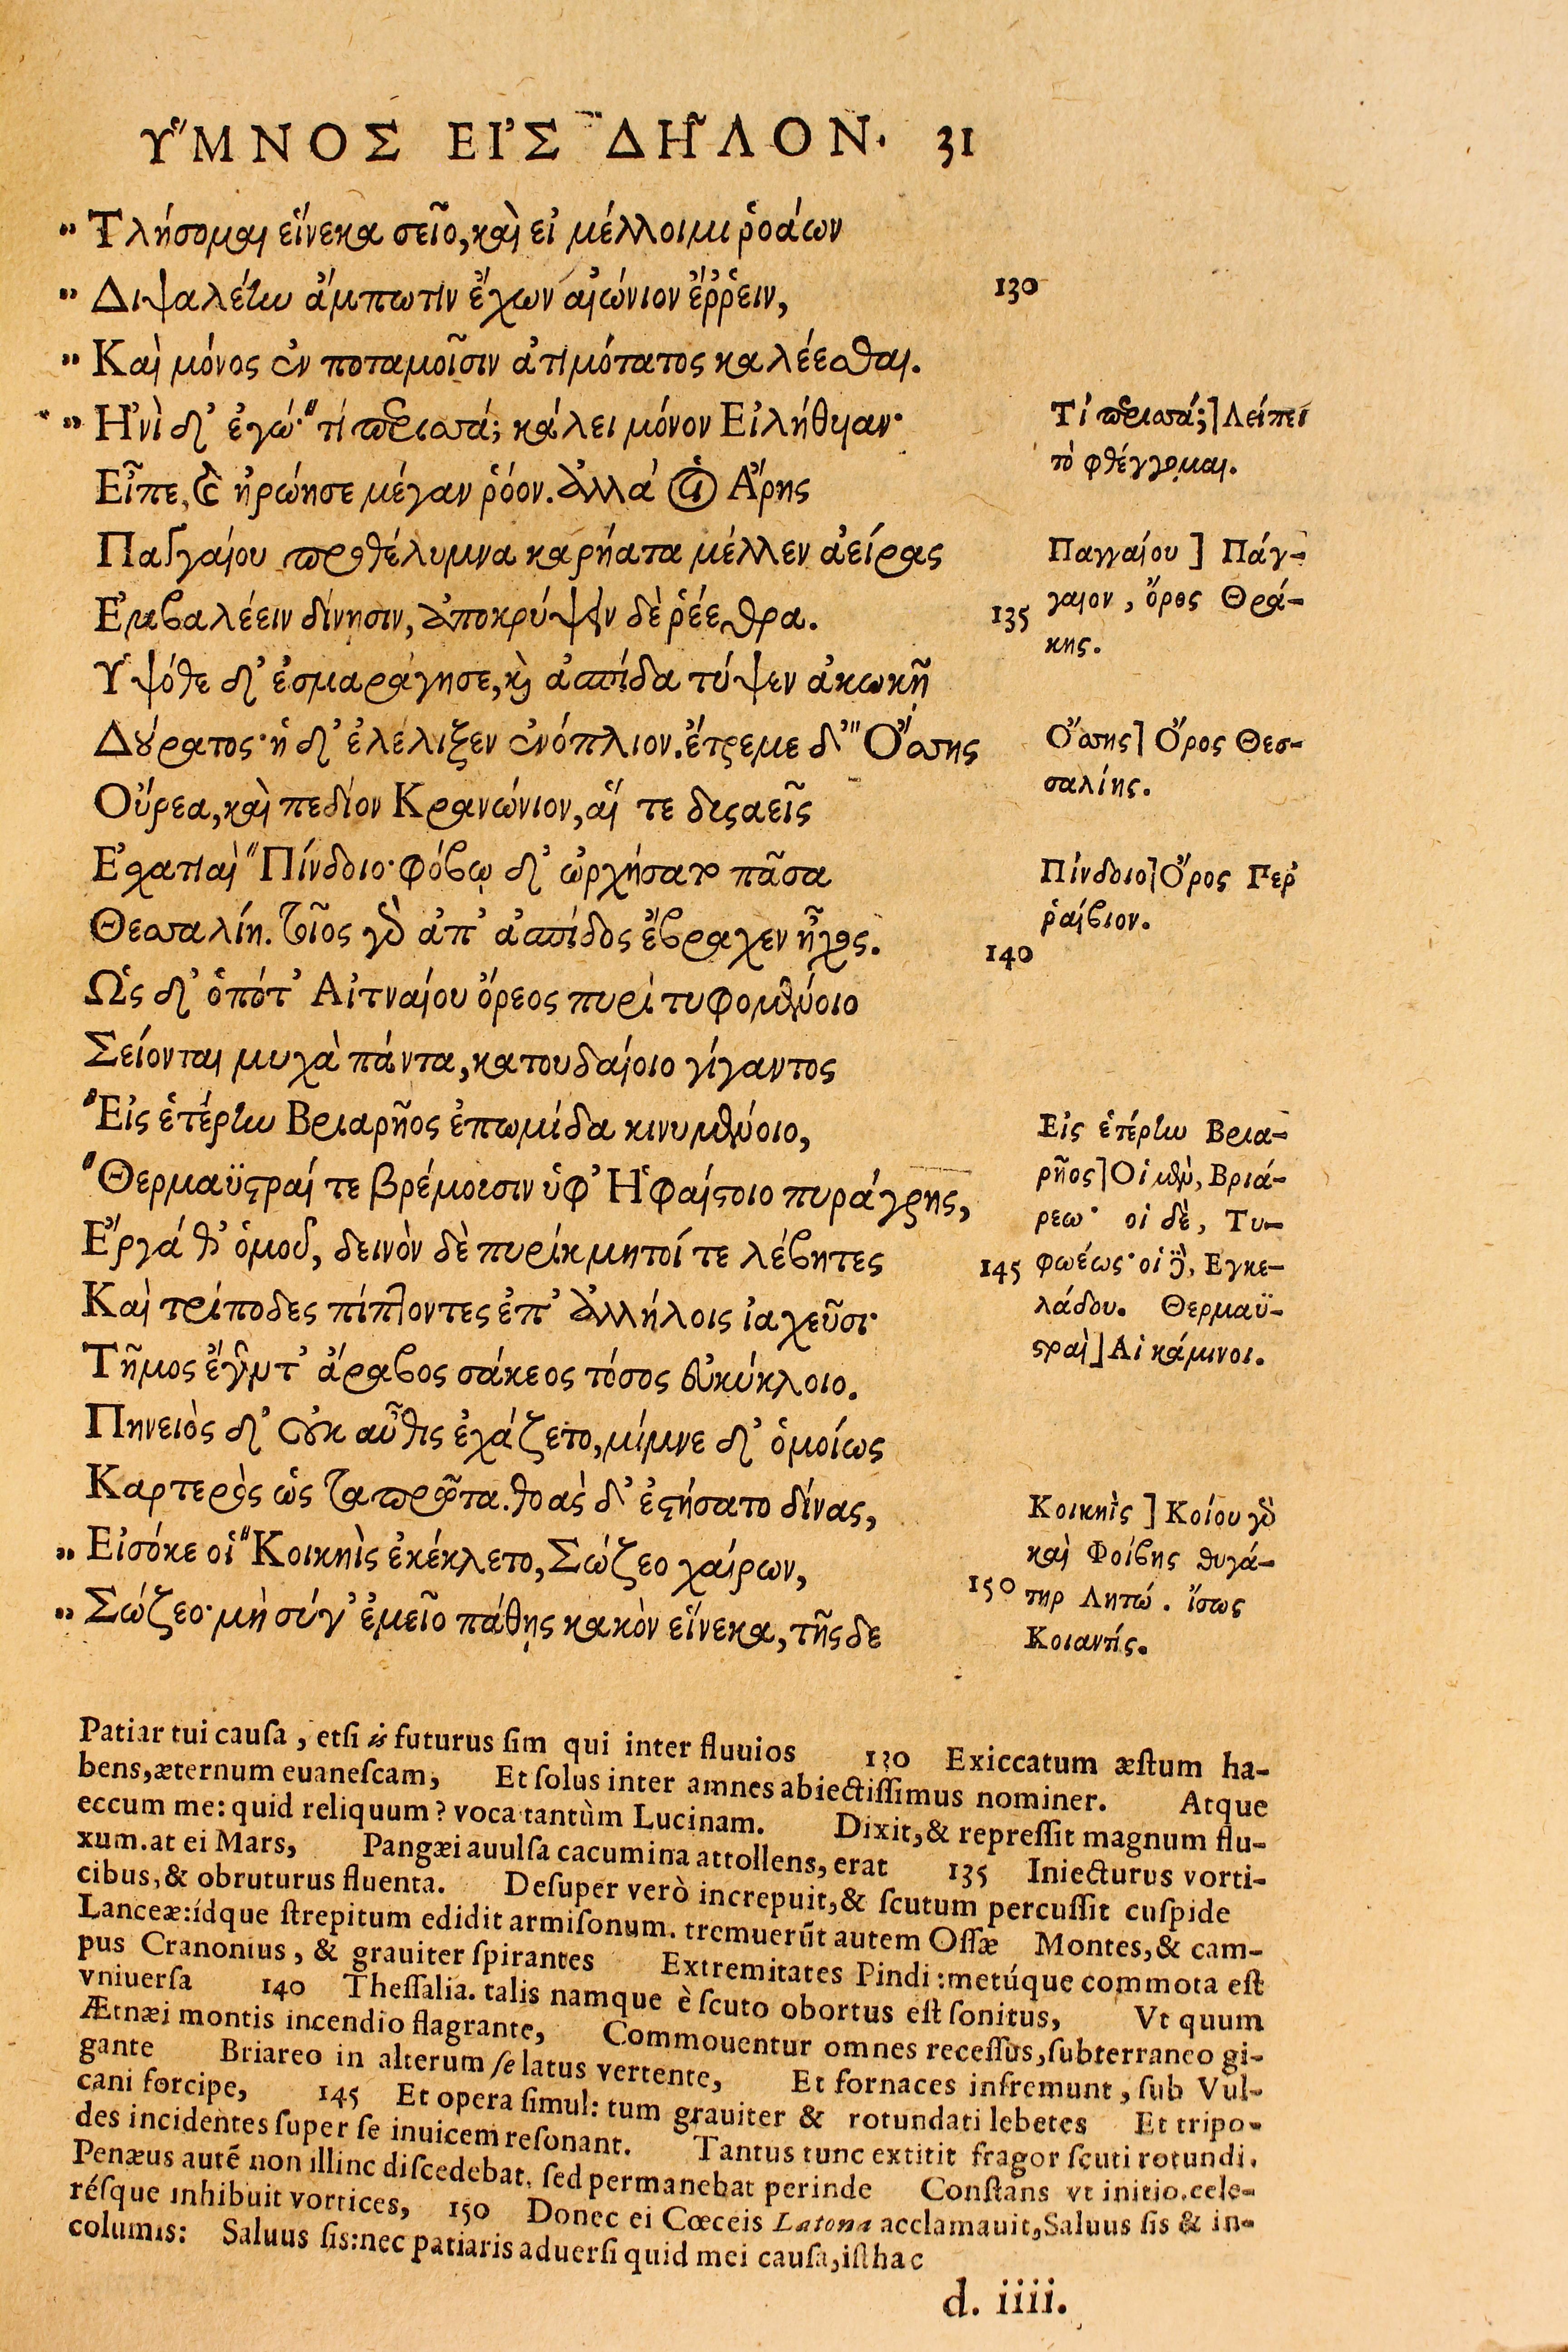 ὙΜΝΟΣ ΕἸΣ ΔΗ͂ΛΟΝ. 31
" Τλήσομαι εἵνεκα σεῖο, καὶ εἰ μέλλοιμι ῥοάων
" Διψαλέην ἄμπωτιν ἔχων αἰώνιον ἔῤῥειν, 130
" Καὶ μόνος ἐν ποταμοῖσιν ἀτιμότατος καλέεσθαι.
" Ἠνὶ δ' ἐγώ· "τί περισσά; κάλει μόνον Εἰλήθυιαν·
Εἶπε, καὶ ἠρώησε μέγαν ῥόον. ἀλλά οἱ Ἄρης
Παγγαίου προθέλυμνα καρήατα μέλλεν ἀείρας
Ἐμβαλέειν δίνησιν, ἀποκρύψειν δὲ ῥέεθρα. 135
Ὑψόθε δ' ἐσμαράγησε, καὶ ἀσπίδα τύψεν ἀκωκῇ
Δούρατος· ἡ δ' ἐλέλιξεν ἐνόπλιον. ἔτρεμε δ' "Ὄσσης
Οὔρεα, καὶ πεδίον Κρανώνιον, αἵ τε δυσαεῖς
Ἐσχατιαὶ "Πίνδοιο· φόβῳ δ' ὠρχήσατο πᾶσα
Θεσσαλίη. τοῖος γὰρ ἀπ' ἀσπίδος ἔβραχεν ἦχος. 140
Ὡς δ' ὁπότ' Αἰτναίου ὄρεος πυρὶ τυφομένοιο
Σείονται μυχὰ πάντα, κατουδαίοιο γίγαντος
"Εἰς ἑτέρην Βριαρῆος ἐπωμίδα κινυμένοιο,
"Θερμαϋστραί τε βρέμοισιν ὑφ' Ἡφαίστοιο πυράγρης,
Ἔργά θ' ὁμοῦ, δεινὸν δὲ πυρίκμητοί τε λέβητες 145
Καὶ τρίποδες πίπτοντες ἐπ' ἀλλήλοις ἰαχεῦσι·
Τῆμος ἔγεντ' ἄραβος σάκεος τόσος εὐκύκλοιο.
Πηνειὸς δ' οὐκ αὖθις ἐχάζετο, μίμνε δ' ὁμοίως
Καρτερὸς ὡς ταπρῶτα. θοὰς δ' ἐστήσατο δίνας,
" Εἰσόκε οἱ "Κοικηῒς ἐκέκλετο, Σώζεο χαίρων, 150
" Σώζεο· μὴ σύγ' ἐμεῖο πάθῃς κακὸν εἵνεκα, τῆςδε
Τί περισσά;] Λείπει
τὸ φθέγγομαι.
Παγγαίου ] Πάγ-
γαιον, ὄρος Θρά-
κης.
Ὄσσης] Ὄρος Θεσ-
σαλίης.
Πίνδοιο] Ὄρος Περ
ῥαίβιον.
Εἰς ἑτέρην Βρια-
ρῆος] Οἱ μὲν, Βριά-
ρεω· οἱ δὲ, Τυ-
φωέως· οἱ δὲ, Εγκε-
λάδου. Θερμαϋ-
στραὶ] Αἱ κάμινοι.
Κοικηῒς ] Κοίου γὰρ
καὶ Φοίβης θυγά-
τηρ Λητώ. ἴσως
Κοιαντίς.
Patiar tui causa, etsi is futurus sim qui inter fluuios 130 Exiccatum æstum ha-
bens, æternum euanescam, Et solus inter amnes abiectissimus nominer. Atque
eccum me: quid reliquum? voca tantùm Lucinam. Dixit, & repressit magnum flu-
xum. at ei Mars, Pangæi auulsa cacumina attollens, erat 135 Iniecturus vorti-
cibus, & obruturus fluenta. Desuper verò increpuit, & scutum percussit cuspide
Lanceæ: ídque strepitum edidit armisonum. tremuerūt autem Ossæ Montes, & cam-
pus Cranonius, & grauiter spirantes Extremitates Pindi: metúque commota est
vniuersa 140 Thessalia. talis namque è scuto obortus est sonitus, Vt quum
Ætnæi montis incendio flagrante, Commouentur omnes recessus, subterraneo gi-
gante Briareo in alterum se latus vertente, Et fornaces infremunt, sub Vul-
cani forcipe, 145 Et opera simul: tum grauiter & rotundati lebetes Et tripo-
des incidentes super se inuicem resonant. Tantus tunc extitit fragor scuti rotundi.
Penæus autē non illinc discedebat, sed permanebat perinde Constans vt initio. cele-
résque inhibuit vortices, 150 Donec ei Cœceis Latona acclamauit, Saluus sis & in-
columis: Saluus sis: nec patiaris aduersi quid mei causa, isthac
d. iiii.